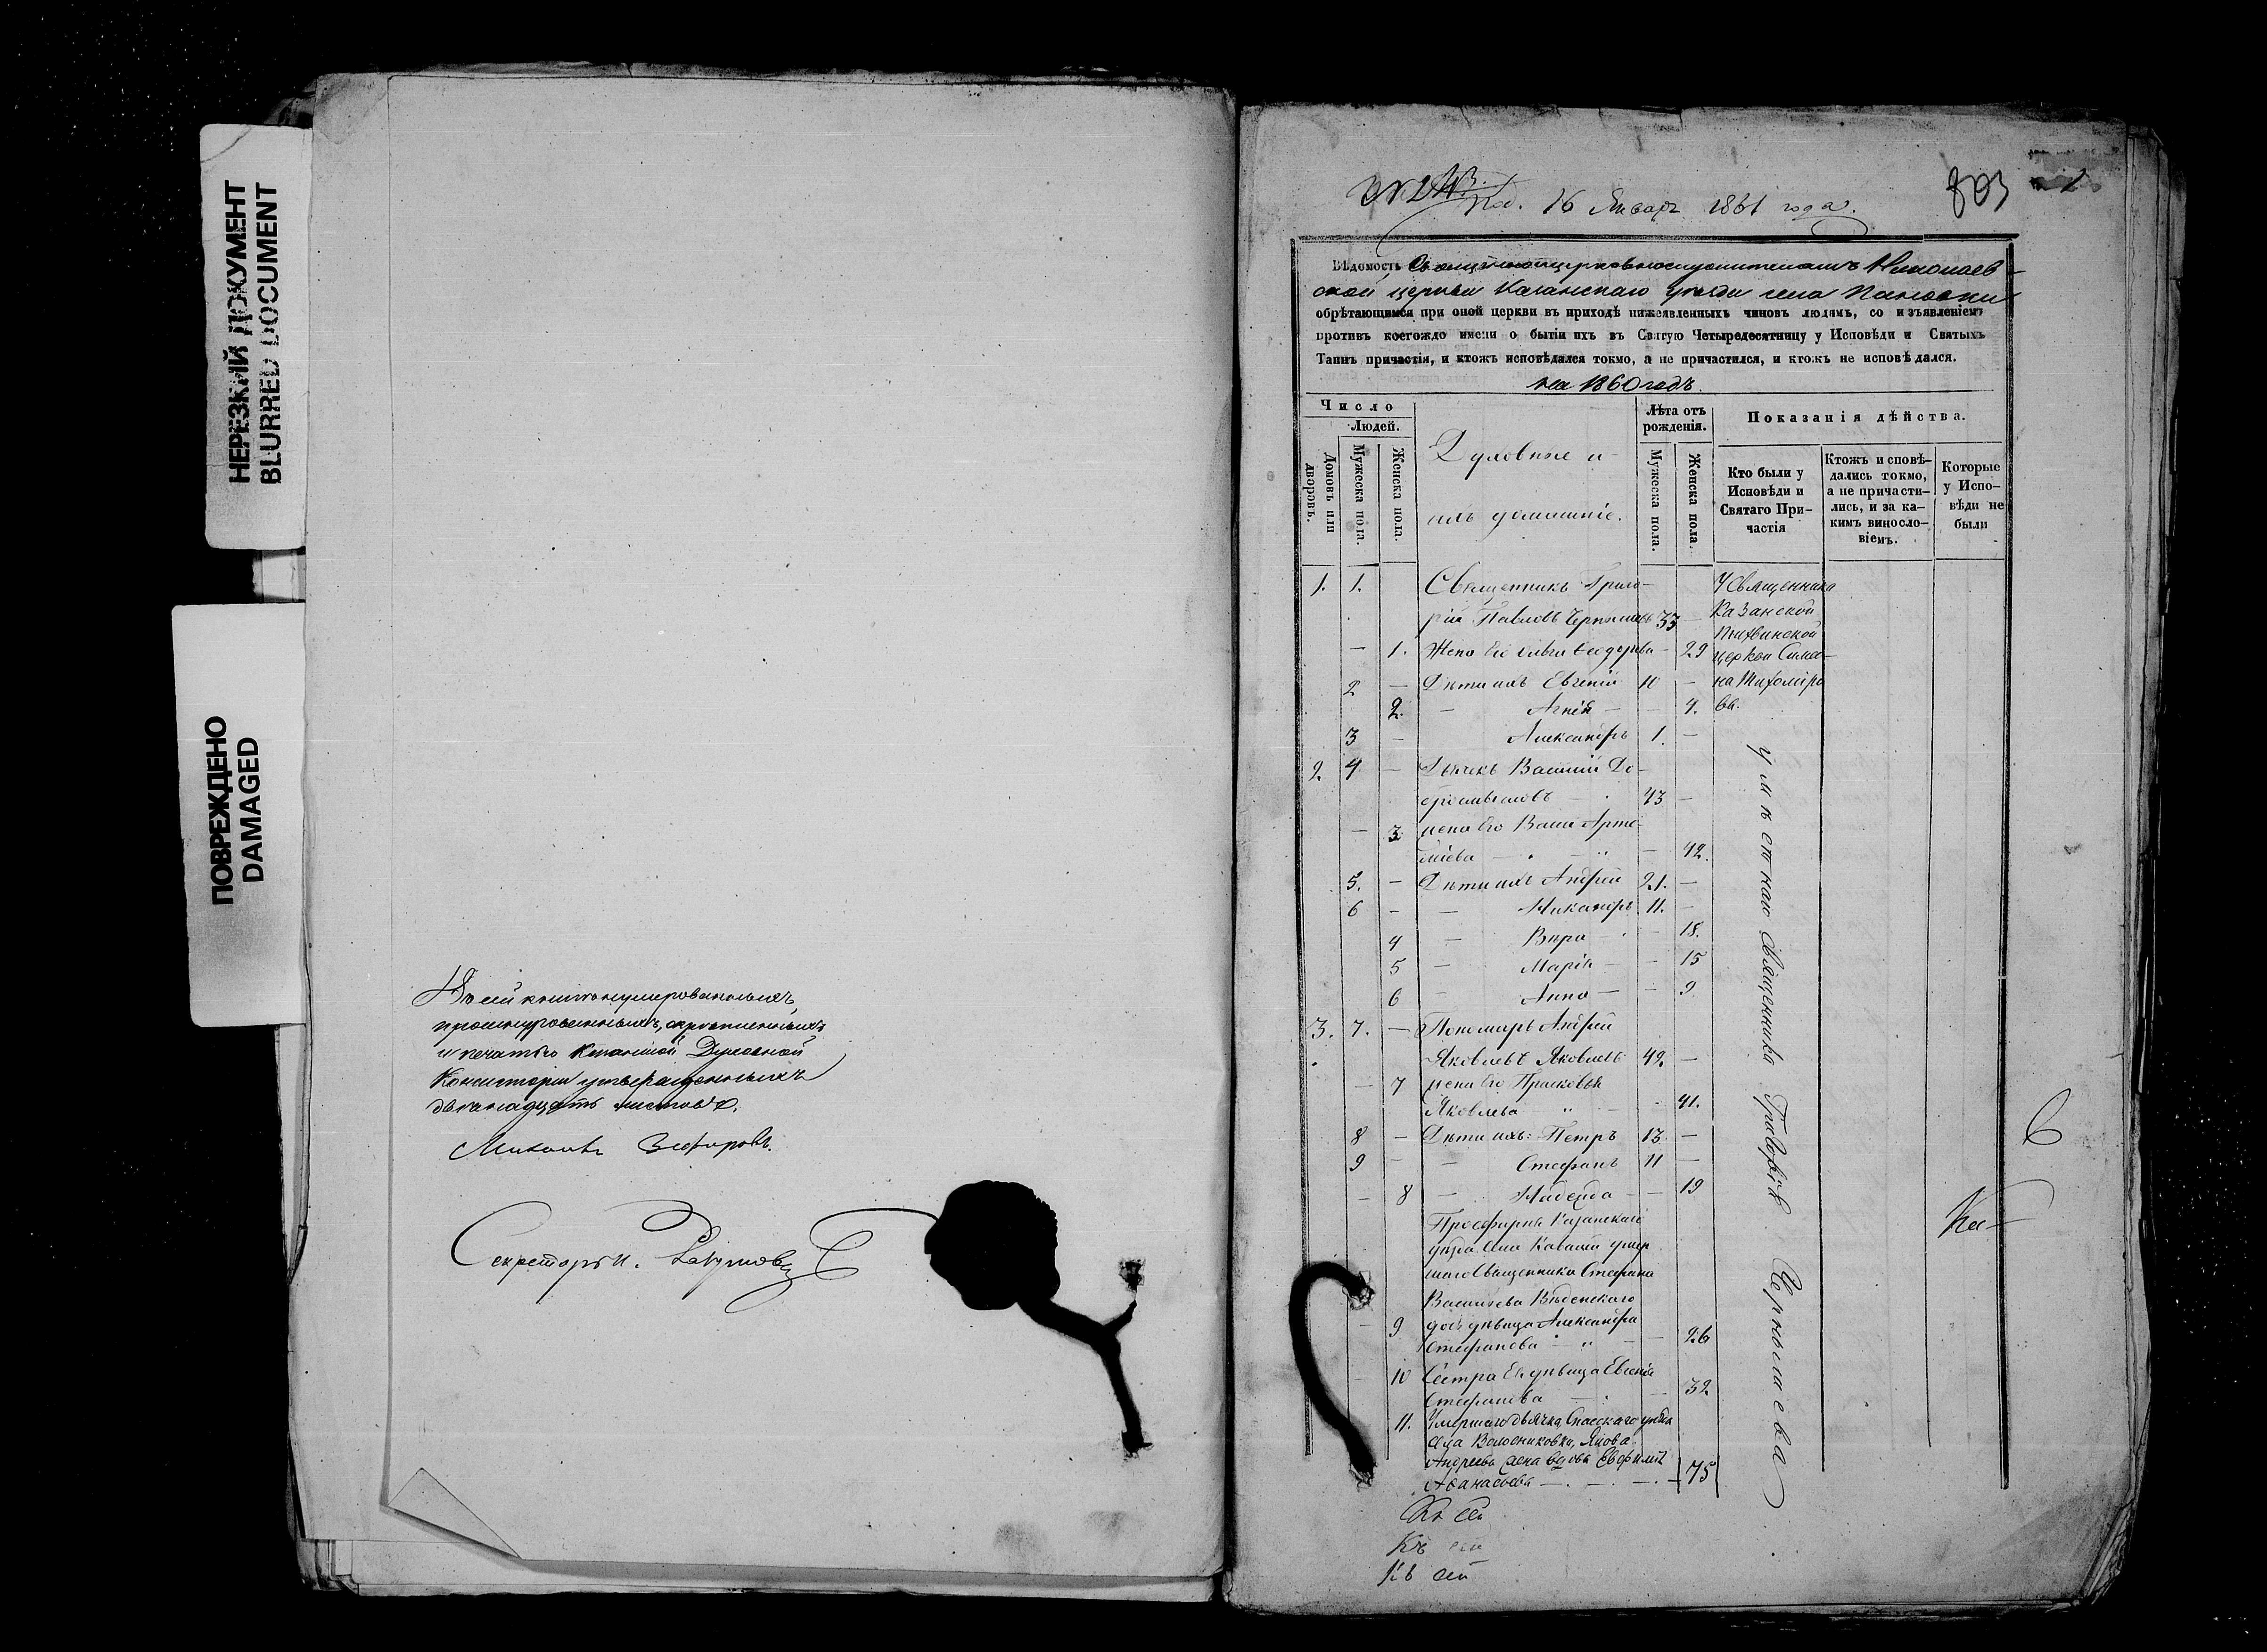 НЕРЕЗКИЙ ДОКУМЕНТ
BLURRED DOCUMENT
ПОВРЕЖДЕНО
DAMAGED
Въ сей книге нумерованныхъ
прошнурованныхъ, скрепленныхъ
и печатью Казанской Духовной
Консисторіи утвержденныхъ
двенадцать листовъ.
Михаилъ Зефировъ.
Секретарь И.
16 Январъ 1861 года.
803
Вѣдомость Священноцерковнослужителямъ Николаев-
ской церкви Казанскаго уезда села Пановки
обрѣтающимся при оной церкви въ приходѣ нижеявленныхъ чиновъ людямъ, со изъявленіемъ
противъ коегождо имени о бытіи ихъ въ Святую Четыредесятницу у Исповѣди и Святыхъ
Таинъ причастія, и ктожъ исповѣдался токмо, а не причастился, и ктожъ не исповѣдался.
на 1860 годъ.
Число
Людей.
Домовъ или дворовъ.
Мужеска пола.
Женска пола.
Духовные и
ихъ домашніе.
Лѣта отъ рожденія.
Мужеска пола.
Женска пола.
Показанія дѣйства.
Кто были у Исповѣди и Святаго Причастія
Ктожъ исповѣ-
дались токмо,
а не причасти-
лись, и за ка-
кимъ винословіемъ.
Которые
у Испо-
вѣди не
были
1. 1. Священникъ Григо-
рій Павловъ Чернышевъ 33
— 1. Жена его Ольга Феодорова 29
2 — Дѣти ихъ Евгеній 10 —
2. — Агнія — 4.
3 — Александръ 1. —
2. 4 — Дьячекъ Василій До-
бросмысловъ 43 —
— 3 жена его Васса Арте-
міева — 42.
5. — Дѣти ихъ Андрей 21. —
6 — — Никаноръ 11. —
4 — Вѣра — 18.
5 — Марія — 15
6 — Анна — 9
3. 7. — Пономарь Андрей
Яковлевъ Яковлевъ 42. —
— 7 жена его Прасковья
Яковлева 41.
8 — Дѣти ихъ: Петръ 13 —
9 — — Стефанъ 11 —
— 8 — Надежда — 19
Просфирня Казанскаго
уѣзда села Кавалей умер-
шаго Священника Стефана
Васильева Введенскаго
— 9 дочь девица Александра
Стефанова — 26
— 10 Сестра Ея девица Евгенія
Стефанова 32
11. Умершаго дьячка Спасскаго уезда
села Якова
Андреева жена вдова Евфимія
Аванасьева — 75
У Священника
Казанской
Тихвинской
церкви Симео-
на Тихомиро
ва.
у местнаго Священника Григорія Чернышева
6
Ка-
Къ Се
Къ се
Къ сей